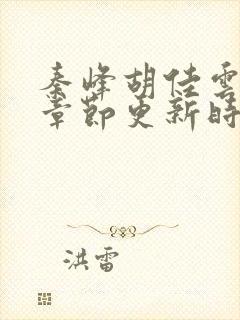 秦峰胡佳雲
章節更新時
洪雷